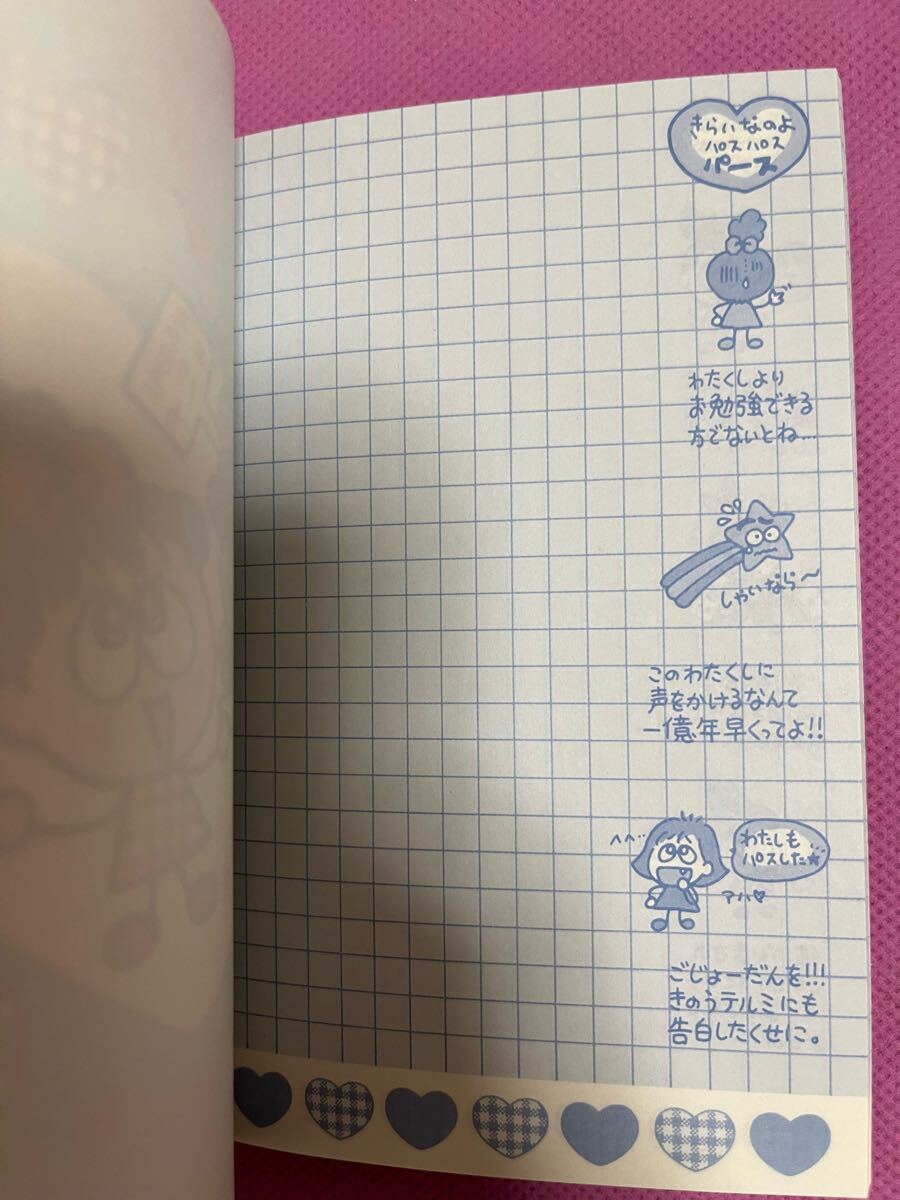 きらいなのよ
パスパス
パース
わたくしより
お勉強できる
方でないとね…
しゃいなら〜
このわたくしに
声をかけるなんて
一億年早くってよ!!
へへ…
わたしも
パスした☆
アハ♡
ごじょーだんを!!!
きのうテルミにも
告白したくせに。